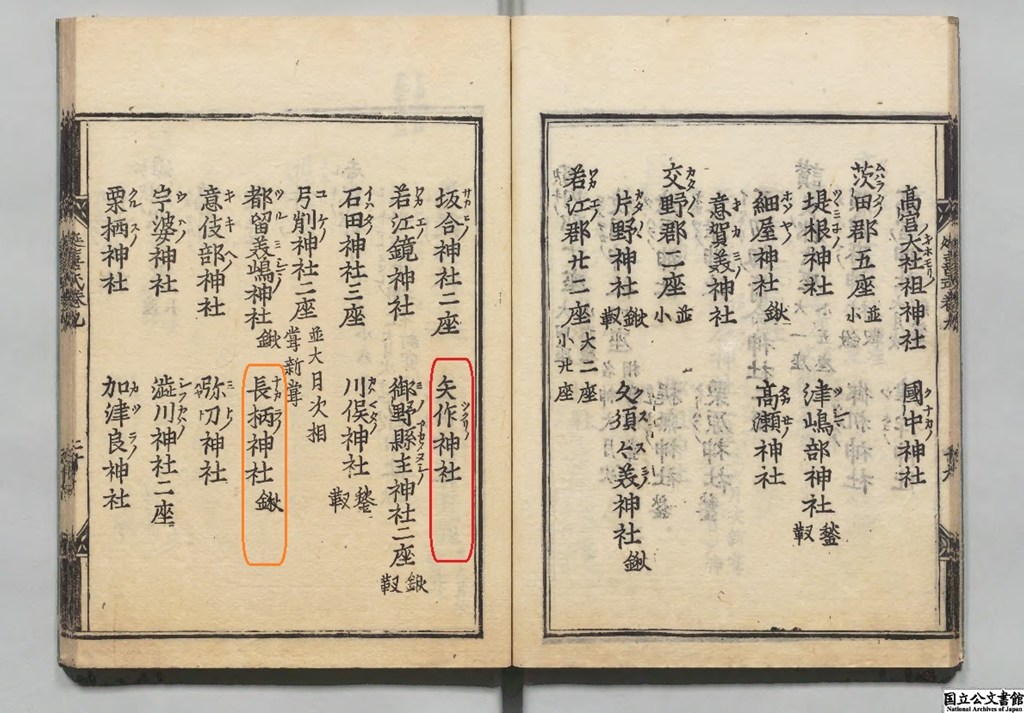 高宮大社祖神社 國中神社
茨田郡五座 並小
堤根神社 津嶋部神社 鍬靫
細屋神社 鍬 高瀬神社
意賀美神社
交野郡二座 並小
片野神社 鍬靫 久須々美神社 鍬
若江郡廿二座 大二座 小廿座
坂合神社二座 矢作神社
若江鏡神社 御野縣主神社二座 鍬靫
石田神社三座 川俣神社 鍬靫
弓削神社二座 並大月次相嘗新嘗
都留美嶋神社 鍬 長柄神社 鍬
意伎部神社 弥刀神社
宇婆神社 澁川神社二座
栗栖神社 加津良神社
国立公文書館
National Archives of Japan